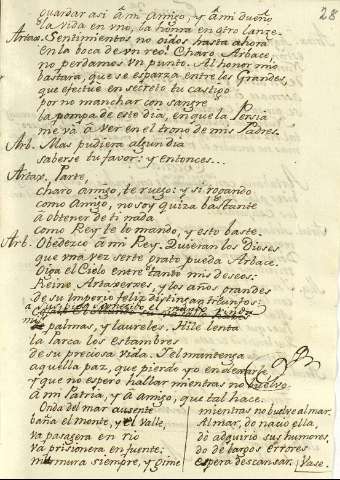 28
guardar asi â mi Amigo, y â mi dueño
la vida en uno, la honra en otro lanze.
Artax. Sentimientos no oidos hasta ahora
en la boca de un reo! Charo Arbace,
no perdamos un punto. Al honor mio
bastarà, que se esparza entre los Grandes,
que efectuè en secreto tu castigo
por no manchar con sangre
la pompa de este dia, en que la Persia
me và â ver en el trono de mis Padres.
Arb. Mas pudiera algun dia
saberse tu favor: y entonces...
Artax. Parte,
charo amigo, te ruego: y si rogando
como Amigo, no soy quiza bastante
â obtener de ti nada
como Rey te lo mando, y esto baste.
Arb. Obedezco â mi Rey. Quieran los Dioses
que una vez serte grato pueda Arbace.
Oiga el Cielo entre tanto mis deseos:
Reine Artaxerxes, y los años grandes
de su Imperio feliz distingan triunfos:
palmas, y laureles. Hile lenta
la Parca los estambres
de su preciosa vida. Y el mantenga
aquella paz, que pierdo yo en dexarle,
y que no espero hallar mientras no buelvo
â mi Patria, y â Amigo, que tal hace.
Onda del mar ausente
baña el monte, y el Valle,
và pasagera en rio
và prisionera en fuente;
murmura siempre, y gime
mientras no buelve al mar.
Al mar, do naciò ella,
dò adquiriò sus humores,
dò de largos errores
espera descansar. Vase.